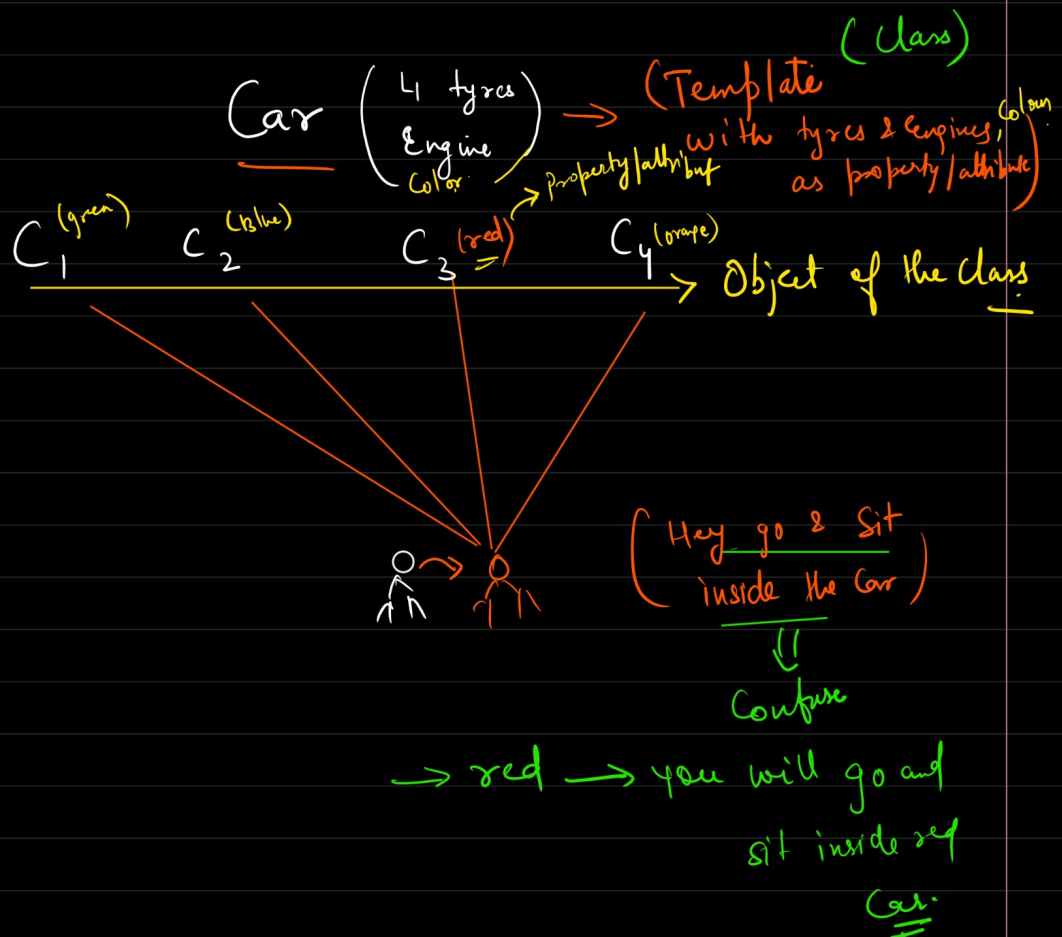 (Class)
Car (4 tyres
Engine
Color)
→ (Template
with tyres & engines, Colour
as property/attribute)
→ Property/attribut
C1 (green) C2 (Blue) C3 (red) C4 (orange)
→ Object of the class
(Hey go & Sit
inside the Car)
Confuse
→ red → you will go and
sit inside red
Car.